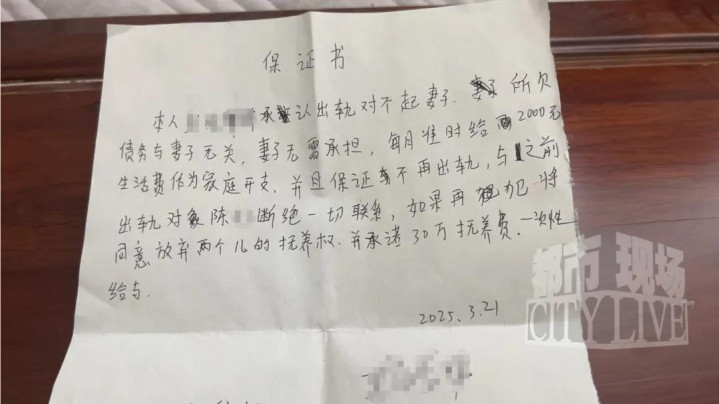 保证书
本人 承认出轨对不起妻子. 所欠
债务与妻子无关，妻子无需承担，每月准时给 2000元
生活费作为家庭开支. 并且保证不再出轨，与之前
出轨对象陈 断绝一切联系，如果再犯 将
同意放弃两个儿的抚养权. 并承诺30万抚养费. 一次性
给与.
2025.3.21
都市现场
CITYLIVE